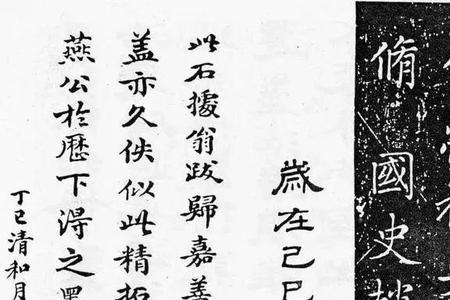 脩國史
歲在己巳
此石據翁跋歸嘉善
盖亦久佚似此精拓
燕公於歷下得之
丁巳清和月